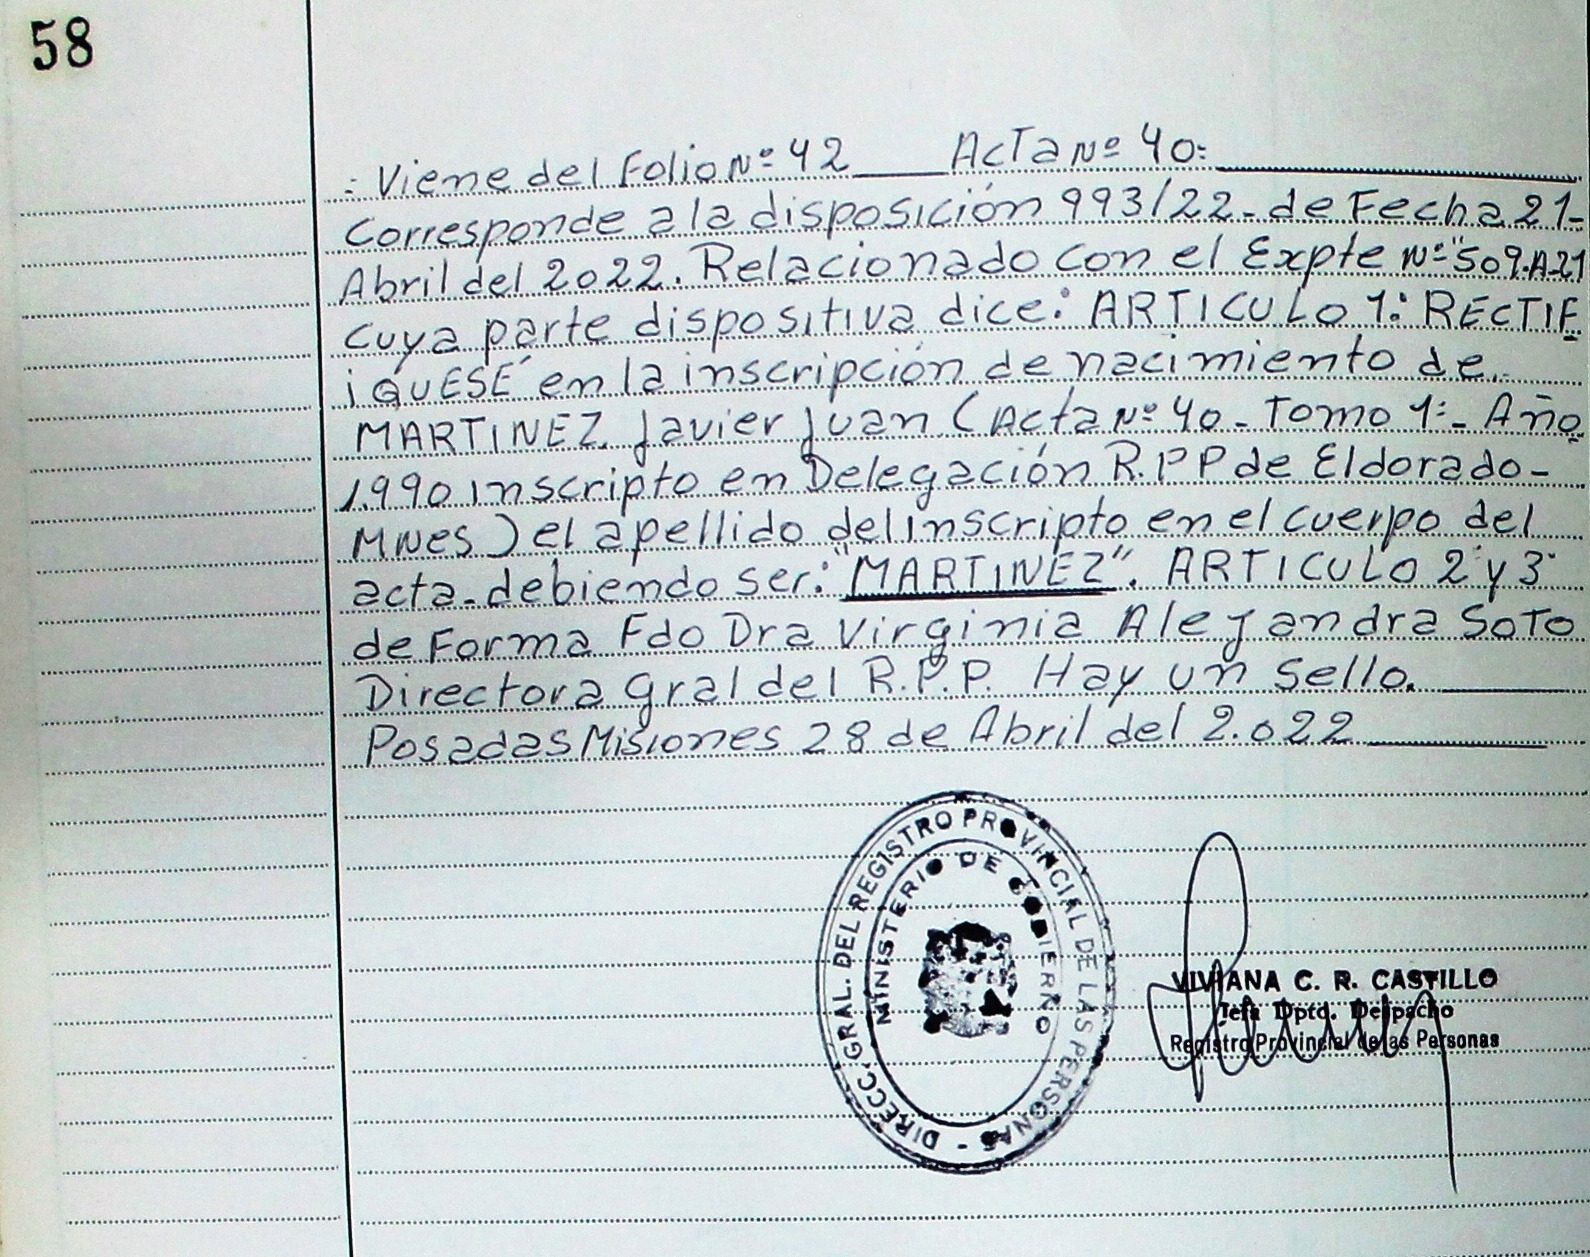 58
: Viene del Folio Nº 42 ____ Acta Nº 40:
Corresponde a la disposición 993/22- de Fecha 21-
Abril del 2022. Relacionado con el Expte Nº "509-A-21
cuya parte dispositiva dice: ARTICULO 1: RECTIF
iQUESE en la inscripción de nacimiento de.
MARTINEZ Javier Juan (Acta Nº 40 - Tomo 1º - Año
1.990 inscripto en Delegación R.P.P de Eldorado-
MNes) el apellido del inscripto en el cuerpo del
acta - debiendo ser: "MARTINEZ". ARTICULO 2º y 3º
de Forma Fdo Dra Virginia Alejandra Soto
Directora Gral del R.P.P. Hay un sello.
Posadas Misiones 28 de Abril del 2.022
DIRECC. GRAL. DEL REGISTRO PROVINCIAL DE LAS PERSONAS -
MINISTERIO DE GOBIERNO
VIVIANA C. R. CASTILLO
Jefa Dpto. Despacho
Registro Provincial de las Personas